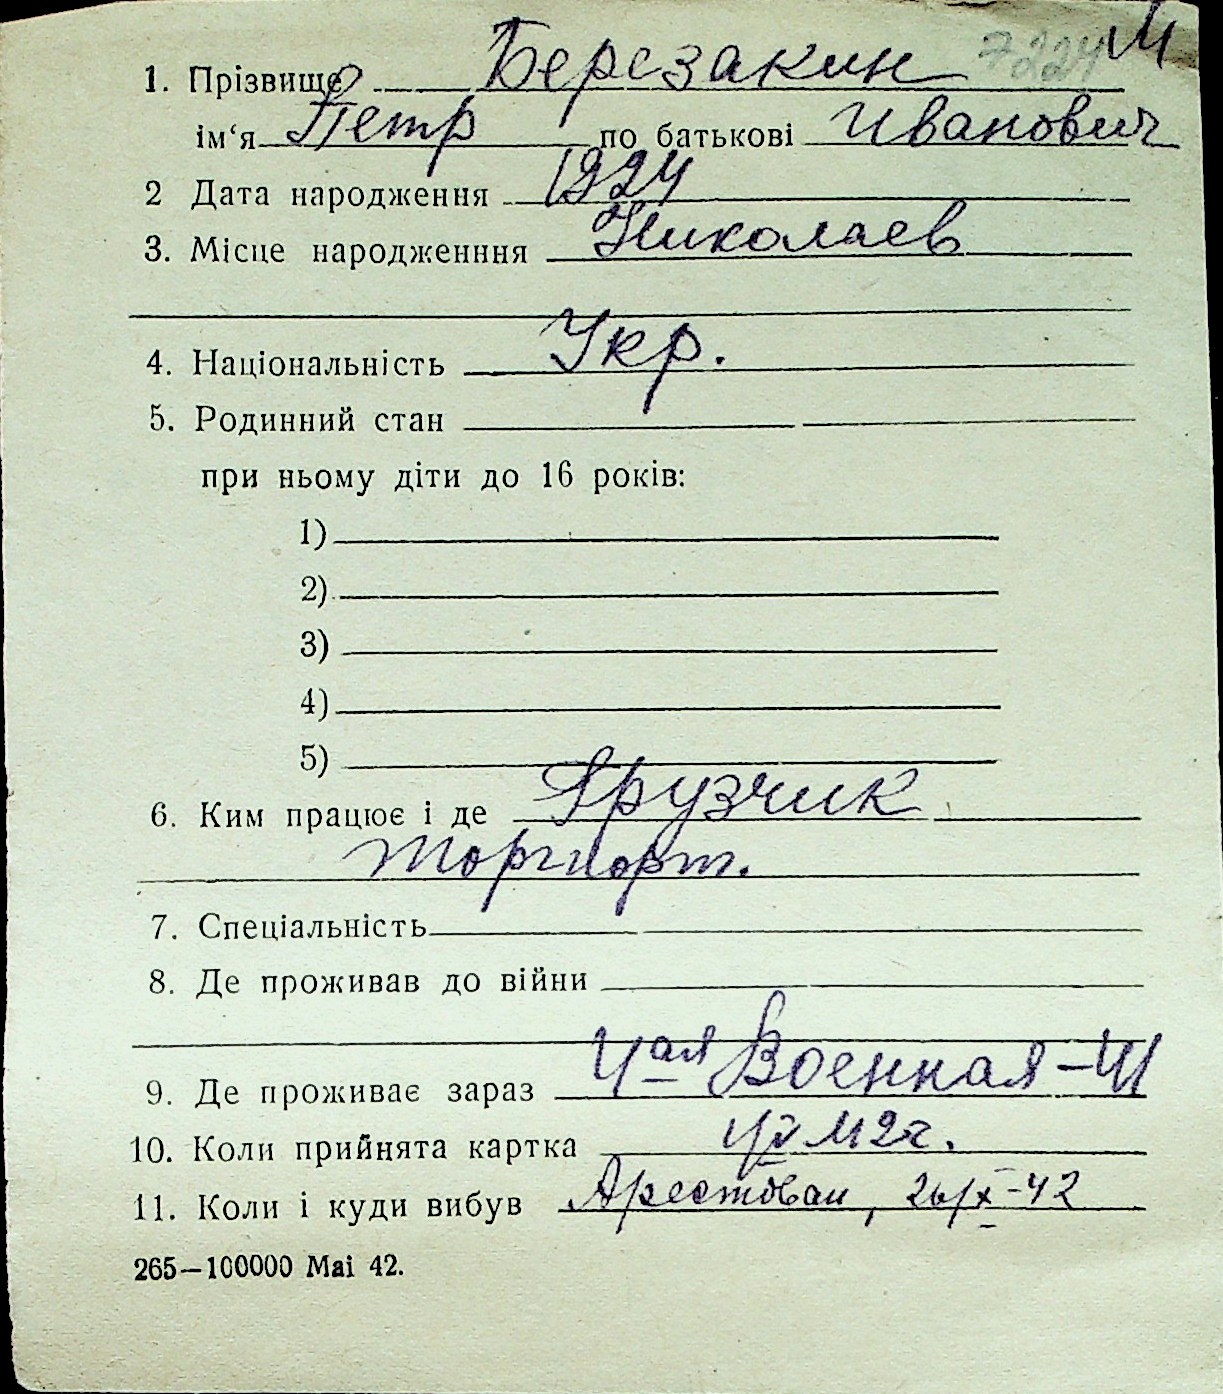 7224 М
1. Прізвище Березакин
ім‘я Петр по батькові Иванович
2 Дата народження 1924
3. Місце народженння Николаев
4. Національність Укр.
5. Родинний стан
при ньому діти до 16 років:
1)
2)
3)
4)
5)
6. Ким працює і де Грузчик
торгпорт.
7. Спеціальність
8. Де проживав до війни
9. Де проживає зараз 4ая Военная-41
10. Коли прийнята картка
11. Коли і куди вибув Арестован, 26/X-42
265—100000 Mai 42.